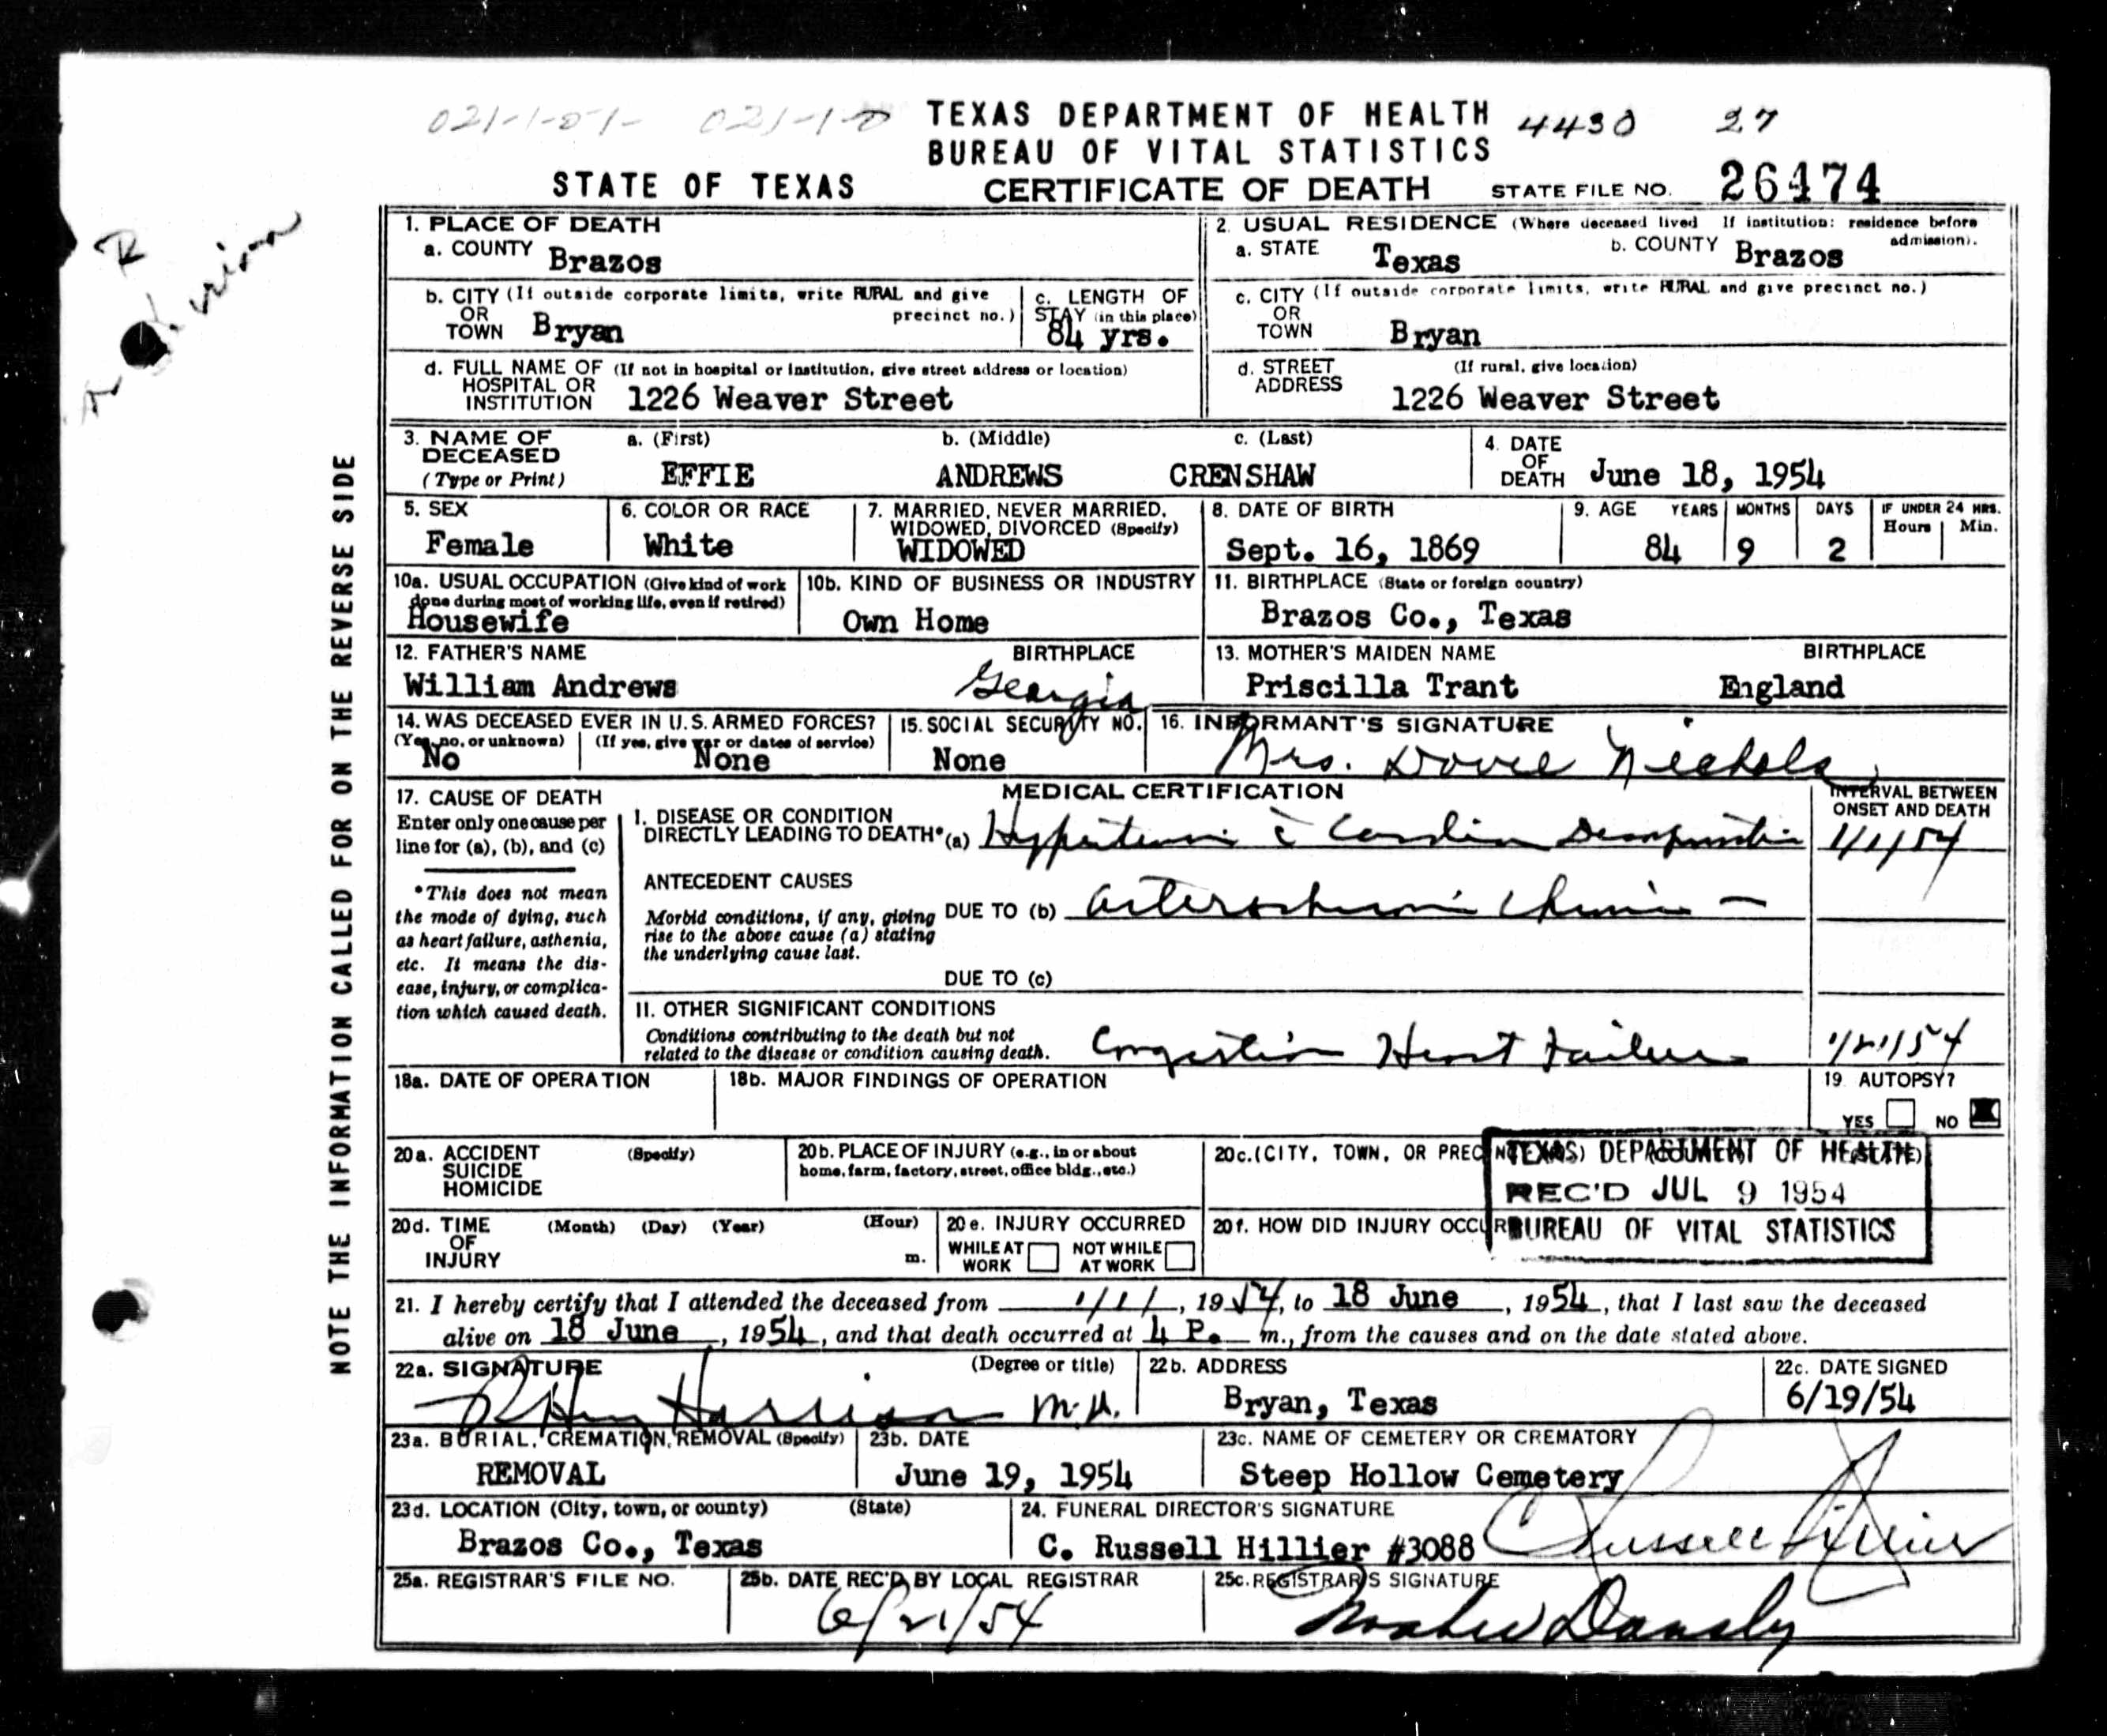 021-1-01- 021-1-0
TEXAS DEPARTMENT OF HEALTH 4430 27
BUREAU OF VITAL STATISTICS
STATE OF TEXAS CERTIFICATE OF DEATH STATE FILE NO. 26474
NOTE THE INFORMATION CALLED FOR ON THE REVERSE SIDE
1. PLACE OF DEATH
a. COUNTY Brazos
2. USUAL RESIDENCE (Where deceased lived If institution: residence before admission).
a. STATE Texas b. COUNTY Brazos
b. CITY (If outside corporate limits, write RURAL and give precinct no.)
OR
TOWN Bryan
c. LENGTH OF
STAY (in this place)
84 yrs.
c. CITY (If outside corporate limits, write RURAL and give precinct no.)
OR
TOWN Bryan
d. FULL NAME OF (If not in hospital or institution, give street address or location)
HOSPITAL OR
INSTITUTION 1226 Weaver Street
d. STREET (If rural, give location)
ADDRESS 1226 Weaver Street
3. NAME OF DECEASED (Type or Print)
a. (First) b. (Middle) c. (Last)
EFFIE ANDREWS CRENSHAW
4. DATE OF DEATH June 18, 1954
5. SEX
Female
6. COLOR OR RACE
White
7. MARRIED, NEVER MARRIED,
WIDOWED, DIVORCED (Specify)
WIDOWED
8. DATE OF BIRTH
Sept. 16, 1869
9. AGE YEARS MONTHS DAYS IF UNDER 24 HRS.
Hours Min.
84 9 2
10a. USUAL OCCUPATION (Give kind of work
done during most of working life, even if retired)
Housewife
10b. KIND OF BUSINESS OR INDUSTRY
Own Home
11. BIRTHPLACE (State or foreign country)
Brazos Co., Texas
12. FATHER'S NAME BIRTHPLACE
William Andrews Georgia
13. MOTHER'S MAIDEN NAME BIRTHPLACE
Priscilla Trant England
14. WAS DECEASED EVER IN U.S. ARMED FORCES?
(Yes, no, or unknown) (If yes, give war or dates of service)
No None
15. SOCIAL SECURITY NO.
None
16. INFORMANT'S SIGNATURE
Mrs. Dovie Nichols
17. CAUSE OF DEATH
Enter only one cause per
line for (a), (b), and (c)
*This does not mean
the mode of dying, such
as heart failure, asthenia,
etc. It means the dis-
ease, injury, or complica-
tion which caused death.
MEDICAL CERTIFICATION
INTERVAL BETWEEN
ONSET AND DEATH
I. DISEASE OR CONDITION
DIRECTLY LEADING TO DEATH* (a) Hypertension c Cardiac 1/1/54
ANTECEDENT CAUSES
Morbid conditions, if any, giving
rise to the above cause (a) stating
the underlying cause last.
DUE TO (b)
DUE TO (c)
II. OTHER SIGNIFICANT CONDITIONS
Conditions contributing to the death but not
related to the disease or condition causing death.
Congestion Heart Failure
18a. DATE OF OPERATION
18b. MAJOR FINDINGS OF OPERATION
19. AUTOPSY?
YES NO
20a. ACCIDENT (Specify)
SUICIDE
HOMICIDE
20b. PLACE OF INJURY (e.g., in or about
home, farm, factory, street, office bldg., etc.)
20c. (CITY, TOWN, OR PRECINCT NO.) (COUNTY) (STATE)
TEXAS DEPARTMENT OF HEALTH
REC'D JUL 9 1954
BUREAU OF VITAL STATISTICS
20d. TIME (Month) (Day) (Year) (Hour)
OF
INJURY m.
20e. INJURY OCCURRED
WHILE AT WORK NOT WHILE AT WORK
20f. HOW DID INJURY OCCUR
21. I hereby certify that I attended the deceased from 1/1/, 1954, to 18 June, 1954, that I last saw the deceased
alive on 18 June, 1954, and that death occurred at 4 P. m., from the causes and on the date stated above.
22a. SIGNATURE (Degree or title)
R Harrison M.D.
22b. ADDRESS
Bryan, Texas
22c. DATE SIGNED
6/19/54
23a. BURIAL, CREMATION, REMOVAL (Specify)
REMOVAL
23b. DATE
June 19, 1954
23c. NAME OF CEMETERY OR CREMATORY
Steep Hollow Cemetery
23d. LOCATION (City, town, or county) (State)
Brazos Co., Texas
24. FUNERAL DIRECTOR'S SIGNATURE
C. Russell Hillier #3088 C Russell Hillier
25a. REGISTRAR'S FILE NO.
25b. DATE REC'D BY LOCAL REGISTRAR
6/21/54
25c. REGISTRAR'S SIGNATURE
Dansby